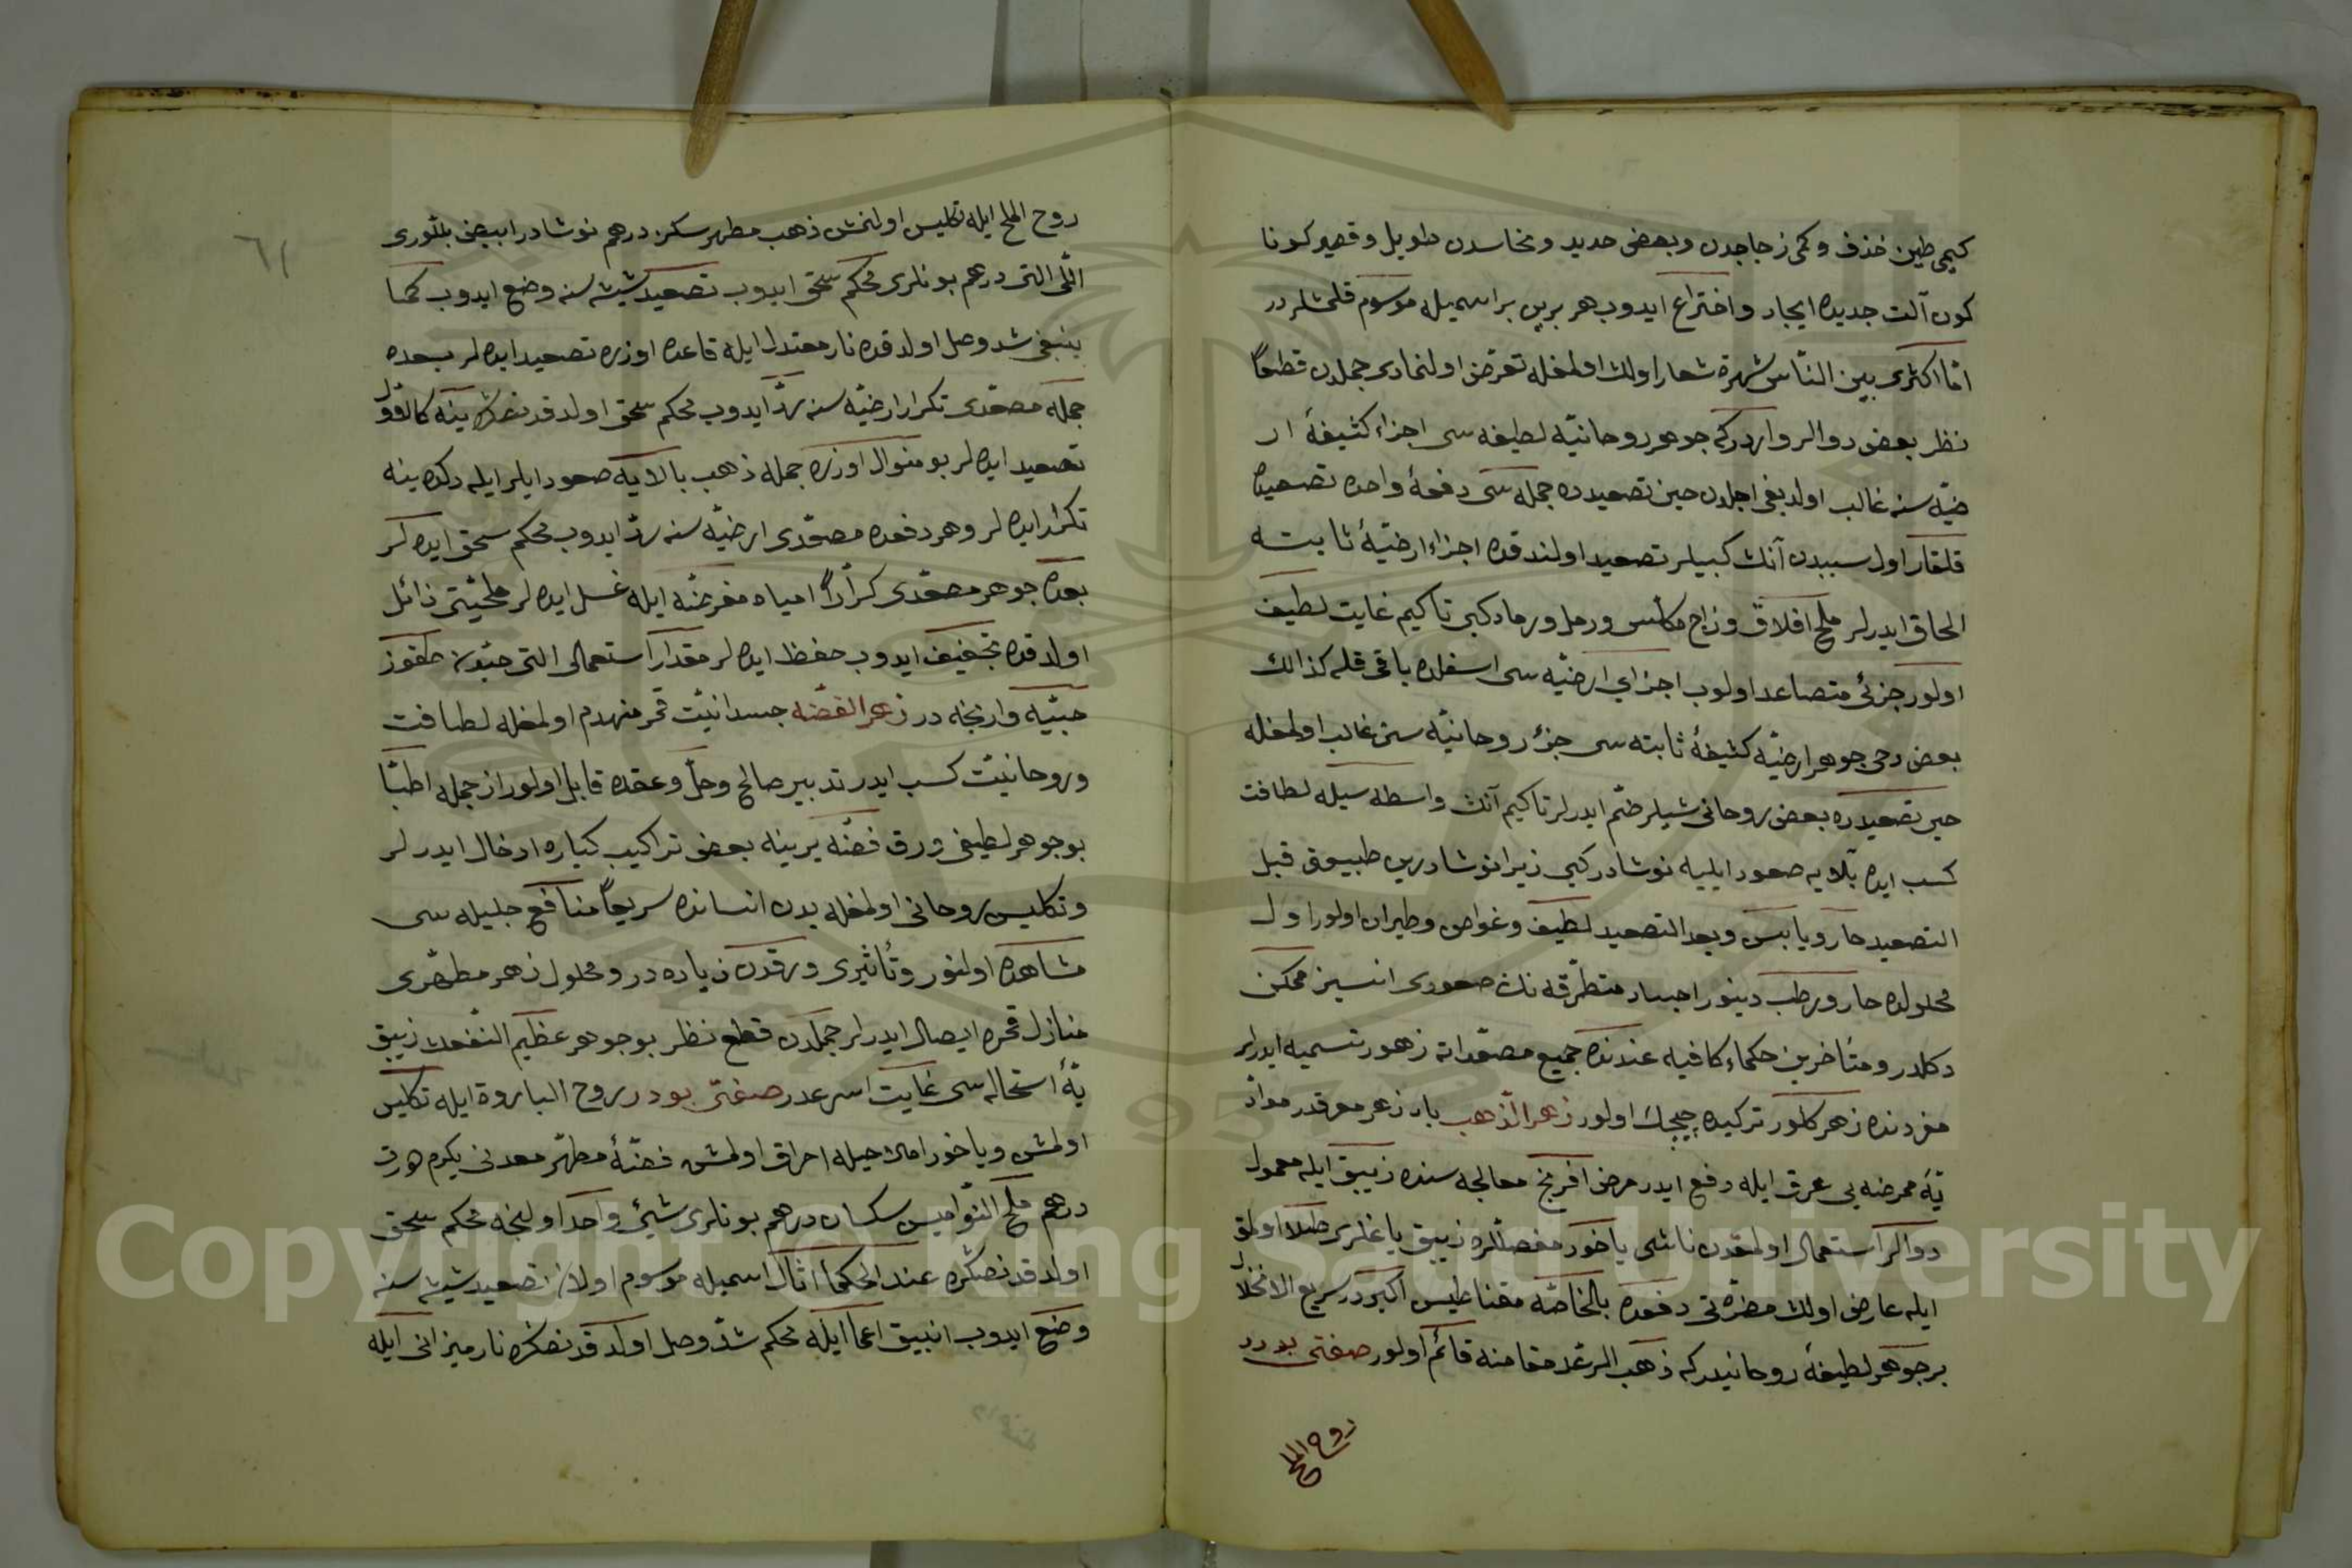 كيمى طين خذف وكمى زجاجدن وبعض حديد ونحاسدن طويل وقصير كونا
كون آلت جديده ايجاد واختراع ايدوب هر برين بر اسميله موسوم قلمشلردر
امّا اكثرى بين النّاس شهرة شعار اولمغله تعرّض اولنمادى جملدن قطعاً
نظر بعض دوالر واردركه جوهر روحانيّه لطيفه سى اجزاء كثيفهٔ ار
ضيّه سنه غالب اولديغى اجلدن حين تصعيدده جمله سى دفعهٔ واحده تصعيد
قلقار اول سببدن آنك كبيلر تصعيد اولندقده اجزاء ارضيّهٔ ثابته
الحاق ايدرلر ملح افلاق وزاج مكلّس ورمل ورماد كبى تاكيم غايت لطيف
اولور جزئى متصاعد اولوب اجزاي ارضيّه سى اسفلده باقى قله كذالك
بعض دخى جوهر ارضيّه كثيفهٔ ثابته سى جزء روحانيّه سنه غالب اولمغله
حين تصعيدده بعض روحانى شيلر ضمّ ايدرلر تاكيم آنك واسطه سيله لطافت
كسب ايده بالايه صعود ايليه نوشادر كبى زيرا نوشادرين طبيعتى قبل
التصعيد حار ويابس وبعد التصعيد لطيف وغواص وطيران اولور اول
محلولده حار ورطب دينور اجساد متطرّقه نك صعودى انسيز ممكن
دكلدر ومتأخرين حكماء كافيه عندنده جميع مصعّداته زهور تسميه ايدرلر
مفردنده زهر كلور تركيده چيچك اولور زهر الذّهب باد زهر معرقدر موادّ
يّهٔ ممرضه يى عرق ايله دفع ايدر مرض افرنج معالجه سنده زيبق ايله معمول
دوالر استعمال اولمقدن ناشى ياخود مفصللره زيبق ياغلرى طلا اولمق
ايله عارض اولان مضرّتى دفعده بالخاصّه مقناطيس اكبردر سريع الانحلال
بر جوهر لطيفهٔ روحانيدركه ذهب الرعد مقامنه قائم اولور صفتى بودر
روح الملح
٦١
روح الملح ايله تكليس اولنمش ذهب مطهر سكز درهم نوشادر ابيض بلّورى
اللّى التى درهم بونلرى محكم سحق ايدوب تصعيد شيشه سنه وضع ايدوب كما
ينبغى شدّ وصل اولدقده نار معتدل ايله قاعده اوزره تصعيد ايده لر بعده
جمله مصعّدى تكرار ارضيّه سنه ردّ ايدوب محكم سحق اولدقدنصكره ينه كالاوّل
تصعيد ايده لر بو منوال اوزره جمله ذهب بالايه صعود ايلر ايله دكده ينه
تكرار ايده لر وهر دفعده مصعّدى ارضيّه سنه ردّ ايدوب محكم سحق ايده لر
بعده جوهر مصعّدى كراراً امياه مفرضّه ايله غسل ايده لر ملحيّتى ذائل
اولدقده تجفيف ايدوب حفظ ايده لر مقدار استعمالى التى حبّه دن طقوز
حبّيه وارنجه در زهر الفضّه جسدانيّت قمر منهدم اولمغله لطافت
وروحانيّت كسب ايدر تدبير صالح وحلّ وعقده قابل اولور از جمله اطبّا
بو جوهر لطيفى ورق فضّه يرينه بعض تراكيب كباره ادخال ايدرلر
وتكليس روحانى اولمغله بدن انسانده سريعاً منافع جليله سى
مشاهده اولنور وتأثيرى ورقدن زياده در ومحلول زهر مطهّرى
منازل قمره ايصال ايدرلر جملدن قطع نظر بو جوهر عظيم النّفعك زيبق
يّهٔ استحاله سى غايت اسرعدر صفتى بودر روح الباروة ايله تكليس
اولمش وياخود اماله حيله احراق اولمش فضّهٔ مطهّر معدنى يكرم درت
درهم ملح النّواميس سكسان درهم بونلرى شئى واحد اولنجه محكم سحق
اولدقدنصكره عند الحكما اثال اسميله موسوم اولان تصعيد شيشه سنه
وضع ايدوب انبيق اعما ايله محكم شدّ وصل اولدقدنصكره نار ميزانى ايله
Copyright © King Saud University